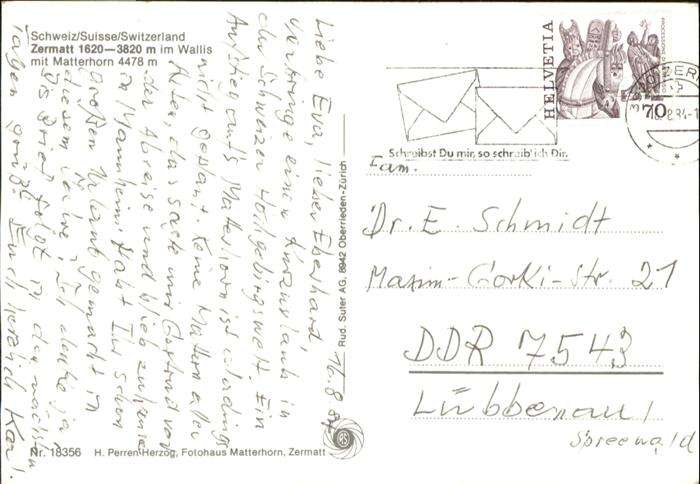 Schweiz/Suisse/Switzerland
Zermatt 1620—3820 m im Wallis
mit Matterhorn 4478 m
16.8.84
Liebe Eva, lieber Eberhard,
verbringe einen Kurzurlaub in
der Schweizer Hochgebirgswelt. Ein
Aufstieg auf's Matterhorn ist allerdings
nicht geplant. Keine Mutter aller
Alter, das sagte mir Gertrud vor
der Abreise und blieb zuhause
in Mannheim. Habt Ihr schon
großen Urlaub gemacht in
diesem Jahre? Ich denke ja.
Als Brief folgt in den nächsten
Tagen Euch herzlich Karl
Nr. 18356
H. Perren-Herzog, Fotohaus Matterhorn, Zermatt
Rud. Suter AG, 8942 Oberrieden-Zürich
HELVETIA
70
Schreibst Du mir, so schreib' ich Dir.
Fam.
Dr. E. Schmidt
Maxim-Gorki-Str. 21
DDR 7543
Lübbenau/
Spreewald